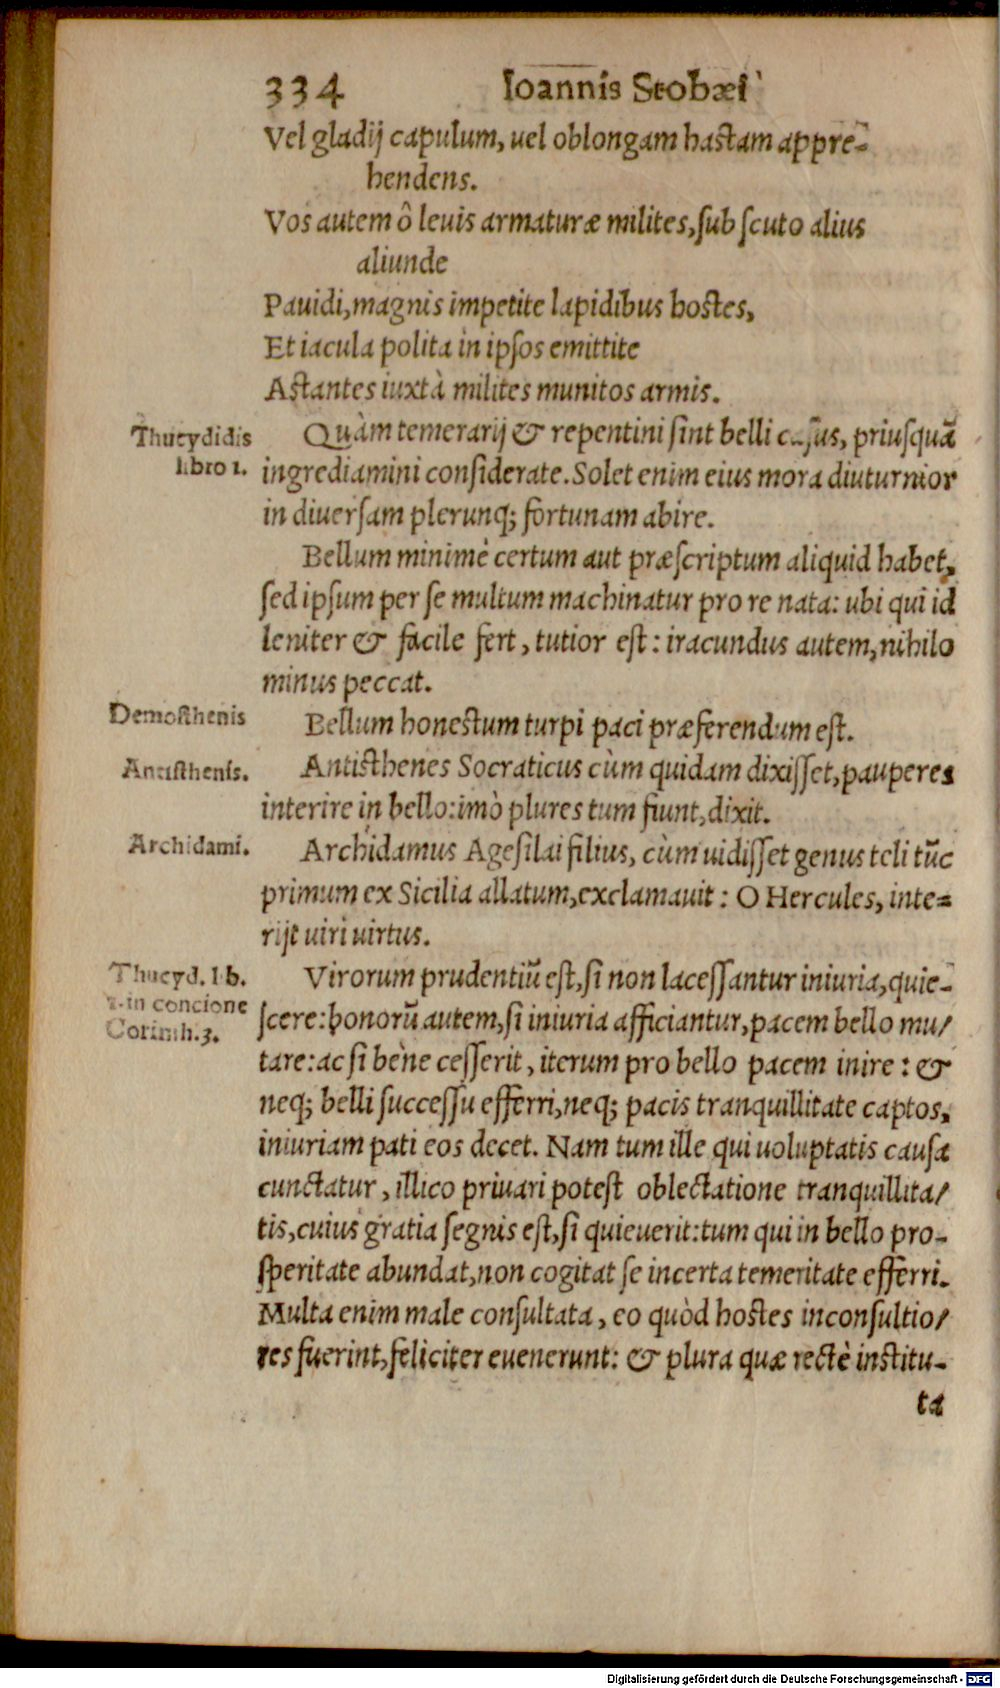 334 Ioannis Stobæi
Vel gladij capulum, uel oblongam hastam appre-
hendens.
Vos autem ô leuis armaturæ milites, sub scuto alius
aliunde
Pauidi, magnis impetite lapidibus hostes,
Et iacula polita in ipsos emittite
Astantes iuxtà milites munitos armis.
Thucydidis
libro 1.
Quàm temerarij & repentini sint belli casus, priusquā
ingrediamini considerate. Solet enim eius mora diuturnior
in diuersam plerunq; fortunam abire.
Bellum minimè certum aut præscriptum aliquid habet,
sed ipsum per se multum machinatur pro re nata: ubi qui id
leniter & facile fert, tutior est: iracundus autem, nihilo
minus peccat.
Demosthenis
Bellum honestum turpi paci præferendum est.
Antisthenis.
Antisthenes Socraticus cùm quidam dixisset, pauperes
interire in bello: imò plures tum fiunt, dixit.
Archidami.
Archidamus Agesilai filius, cùm uidisset genus teli tūc
primum ex Sicilia allatum, exclamauit: O Hercules, inte=
rijt uiri uirtus.
Thucyd. lib.
1. in concione
Corinth. 3.
Virorum prudentiū est, si non lacessantur iniuria, quie-
scere: bonorū autem, si iniuria afficiantur, pacem bello mu/
tare: ac si bène cesserit, iterum pro bello pacem inire: &
neq; belli successu efferri, neq; pacis tranquillitate captos,
iniuriam pati eos decet. Nam tum ille qui uoluptatis causa
cunctatur, illico priuari potest oblectatione tranquillita/
tis, cuius gratia segnis est, si quieuerit: tum qui in bello pro-
speritate abundat, non cogitat se incerta temeritate efferri.
Multa enim male consultata, eo quòd hostes inconsultio/
res fuerint, feliciter euenerunt: & plura quæ rectè institu-
ta
Digitalisierung gefördert durch die Deutsche Forschungsgemeinschaft - DFG